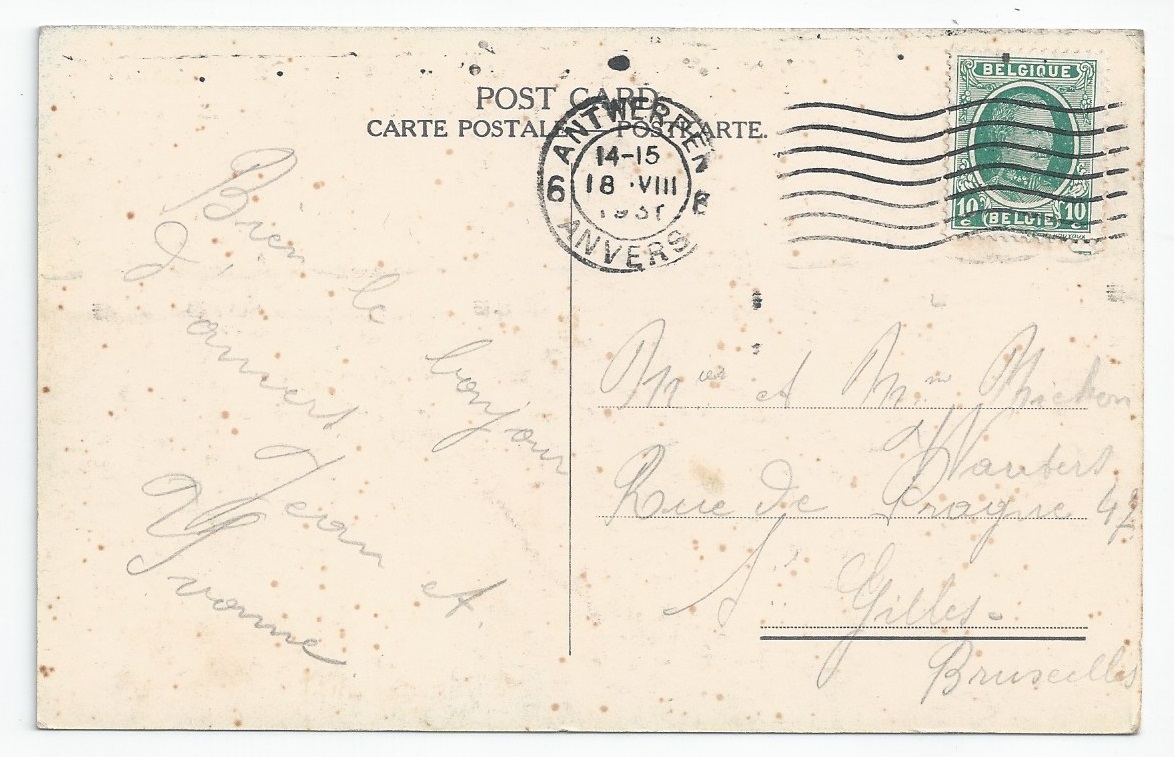 POST CARD
CARTE POSTALE — POSTKARTE.
ANTWERPEN
14-15
18 .VIII
1931
6 6
ANVERS
BELGIQUE
10 c BELGIË 10 c
Bien le bonjour
d'anvers
Jean et
Yvonne
et Mm Michon
Wauters
Rue de Prague 47
St Gilles-
Bruxelles